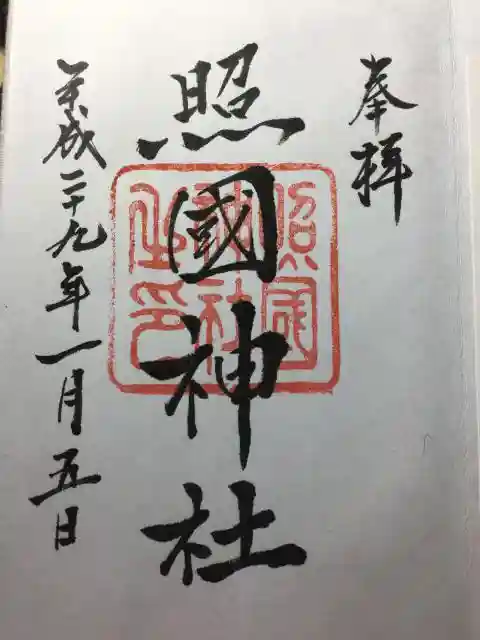 奉拝
照國神社
照国
神社
之印
平成二十九年一月五日